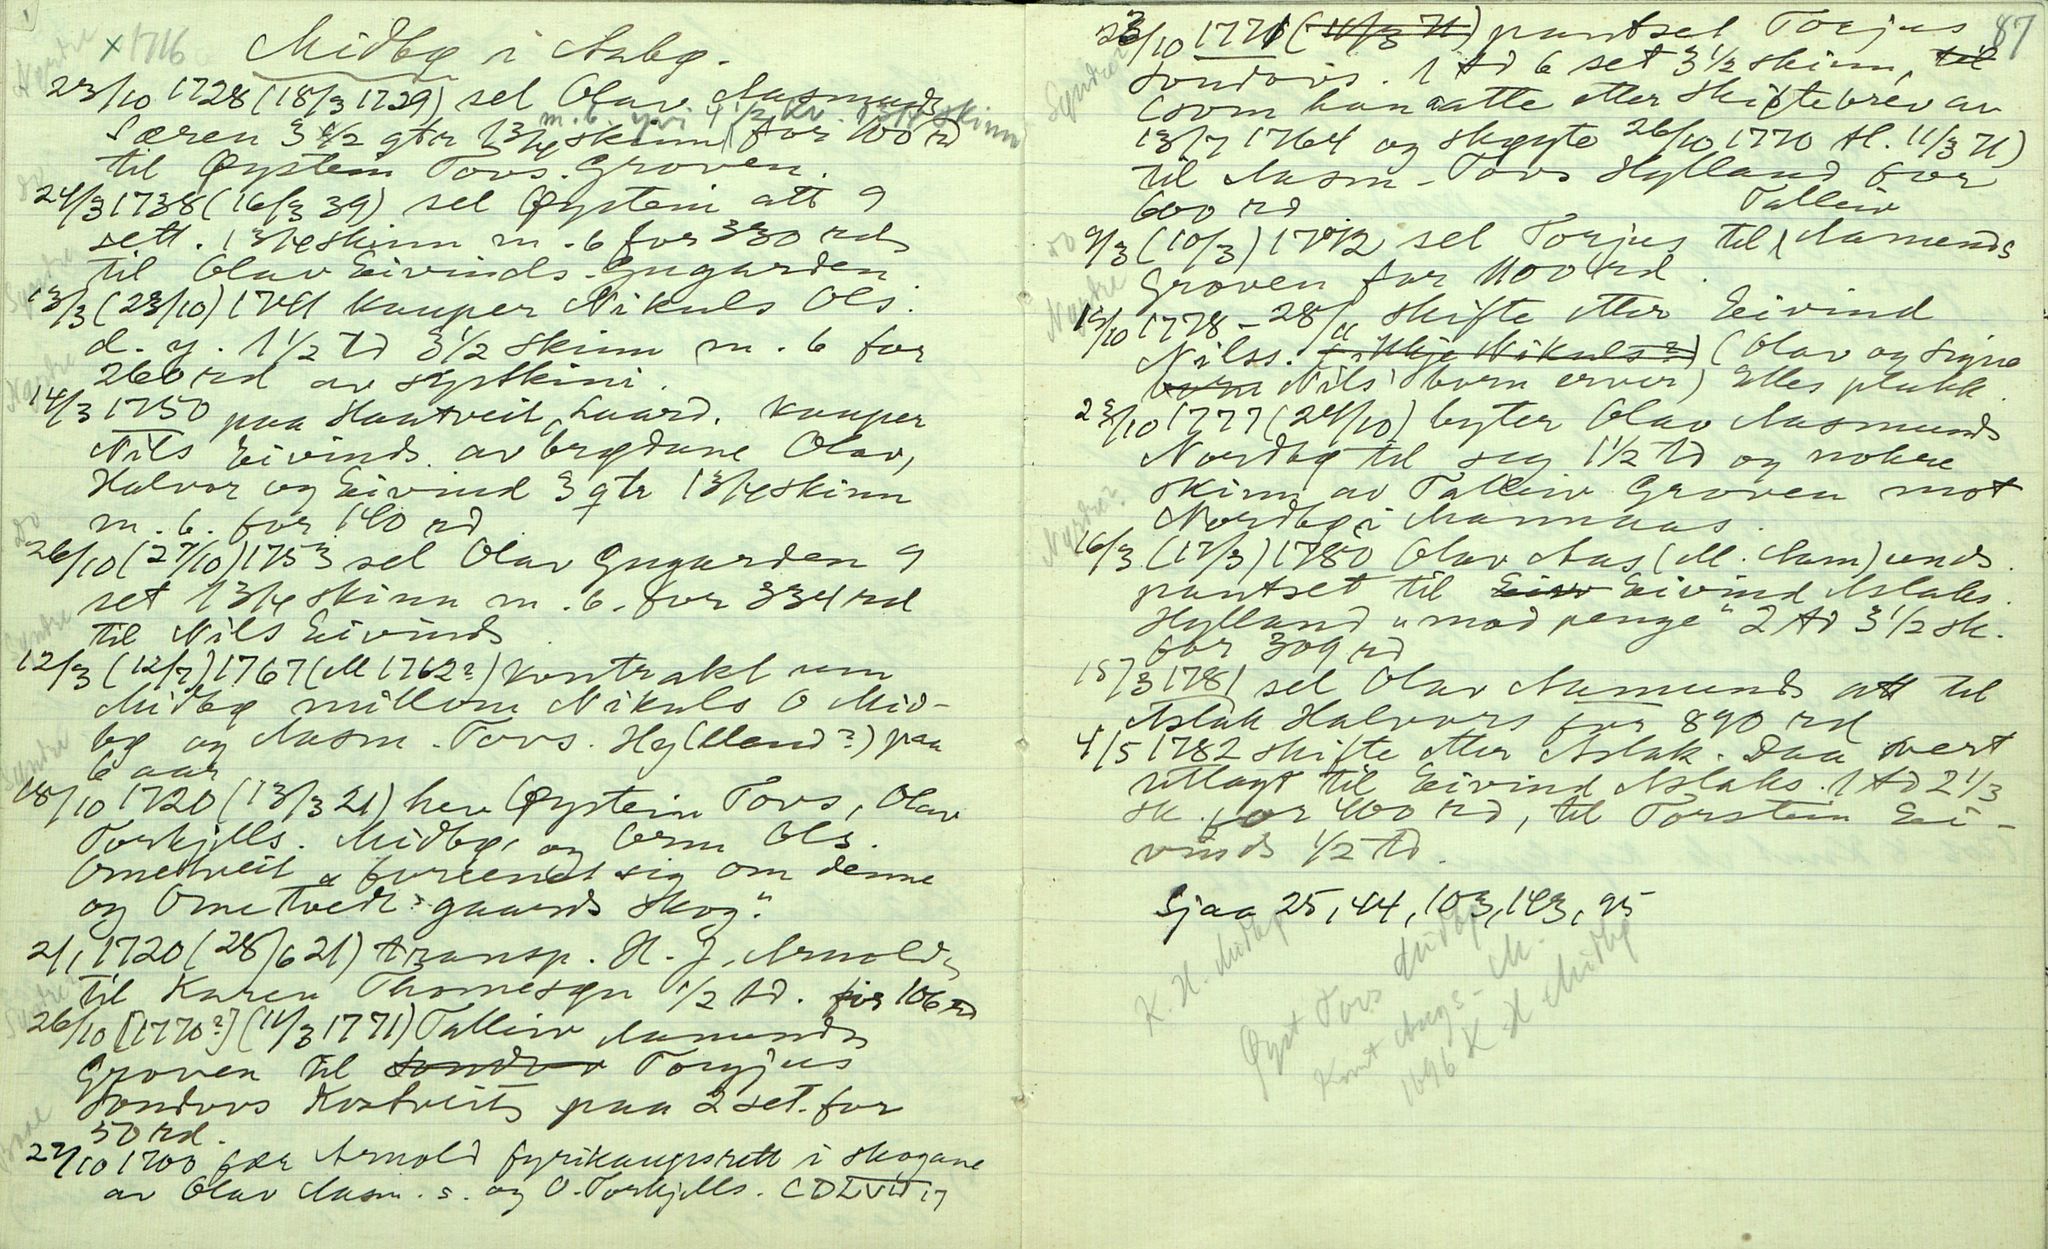 1
x 1716
Midbø i Aabø.
23/10 1728 (18/3 1729) sel Olav Aasmunds
m. b. yvi 4 1/2 kv. 13/4 skinn
Særen 3 1/2 qtr 1 3/4 skinn for 100 rd
til Øystein Tovs. Groven.
24/3 1738 (16/3 39) sel Øystein att 9
sett. 1 3/4 skinn m. b for 330 rd
til Olav Eivinds. Gugarden
13/3 (23/10) 1741 kauper Nikuls Ols.
d. y. 1 1/2 td 3 1/2 skinn m. b for
260 rd av
14/3 1750 paa Hautveit, Laard. kauper
Nils Eivinds. av brødune Olav,
Halvor og Eivind 3 qtr 1 3/4 skinn
m. b. for 140 rd
do
26/10 (27/10) 1753 sel Olav Gugarden 9
set 1 3/4 skinn m. b. for 334 rd
til Nils Eivinds
12/3 (12/7) 1767 (M 1762?) kontrakt um
Midbø millom Nikuls O Mid-
bø og Aasm. Tovs. Hy(lland?) paa
6 aar
18/10 1720 (13/3 21) hev Øystein Tovs, Olav
Torkjells. Midbø, og Orm Ols.
Ometveit "foreenet sig om denne
og Ometvedt gaards skog".
2/1 1720 (28/6 21) transp. H. J. Arnold
til Karen Thomesøn 1/2 td. for 106 rd
26/10 [1770?] (11/3 1771) Talleiv Aamunds
Groven til Sondre Torjus
Sondovs Kostveit paa 2 set. for
50 rd.
27/10 1700 fær Arnold fyrikaupsrett i skogane
av Olav Aasm. s. og O. Torkjells.
87
23/10 1771 (11/3 71) pantset Torjus
Sondovs. 1 td 6 set 3 1/2 skinn, til
(som han aatte etter skiftebrev av
13/7 1764 og skøyte 26/10 1770 tl. 11/3 71)
til Aasm. Tovs Hylland for
600 rd
Talleiv
9/3 (10/3) 1772 sel Torjus til Aamunds
Groven for 1100 rd.
Nordre
15/10 1778 - 28/4 skifte etter Eivind
Nilss. (Olav og Signe
born Nils' born erver) Elles plukk.
23/10 1777 (24/10) byter Olav Aasmunds
Nordbø til seg 1 1/2 td og nokre
skinn av Talleiv Groven mot
Nordbø i Mannaas.
16/3 (17/3) 1780 Olav Aas (M. Aam)unds.
pantset til Eivind Aslaks.
Hylland "mod penge" 2 td 3 1/2 sk.
for 309 rd
15/3 1781 sel Olav Aamunds att til
Aslak Halvors for 890 rd
4/5 1782 skifte etter Aslak. Daa vert
utlagt til Eivind Aslaks. 1 td 2 1/3
sk. for 400 rd, til Torstein Ei-
vinds 1/2 td.
Sjaa 25, 44, 103, 143, 95
K. H. Midbø
Øyst Tovs Midbø
Knut Augs- M.
1696 K H Midbø